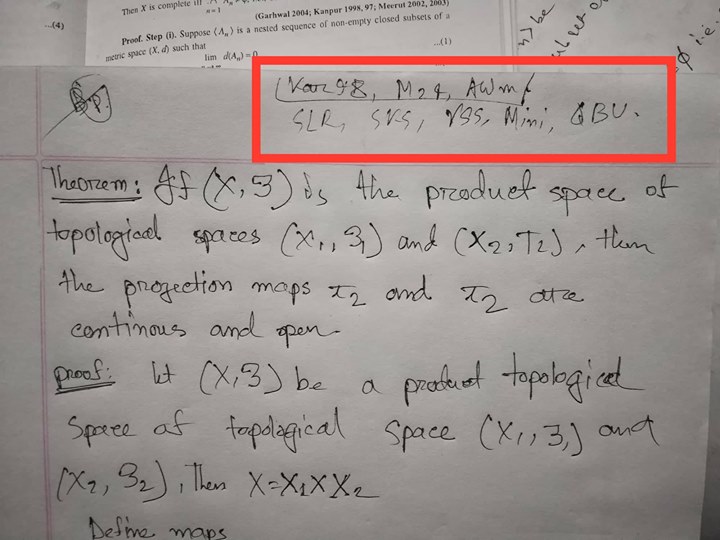 ...(4)
Then X is complete iff
n=1
(Garhwal 2004; Kanpur 1998, 97; Meerut 2002, 2003)
Proof. Step (i). Suppose ⟨Aₙ⟩ is a nested sequence of non-empty closed subsets of a
metric space (X, d) such that
lim d(Aₙ) = 0
...(1)
be
i.e.
SLR, SKS, VSS, Mini, QBU.
Theorem: If (X, ℑ) is the product space of
topological spaces (X₁, ℑ₁) and (X₂, T₂), then
the projection maps π₂ and π₂ are
continous and open.
proof: let (X, ℑ) be a product topological
Space of topological space (X₁, ℑ₁) and
(X₂, ℑ₂), Then X = X₁ X X₂
Define maps